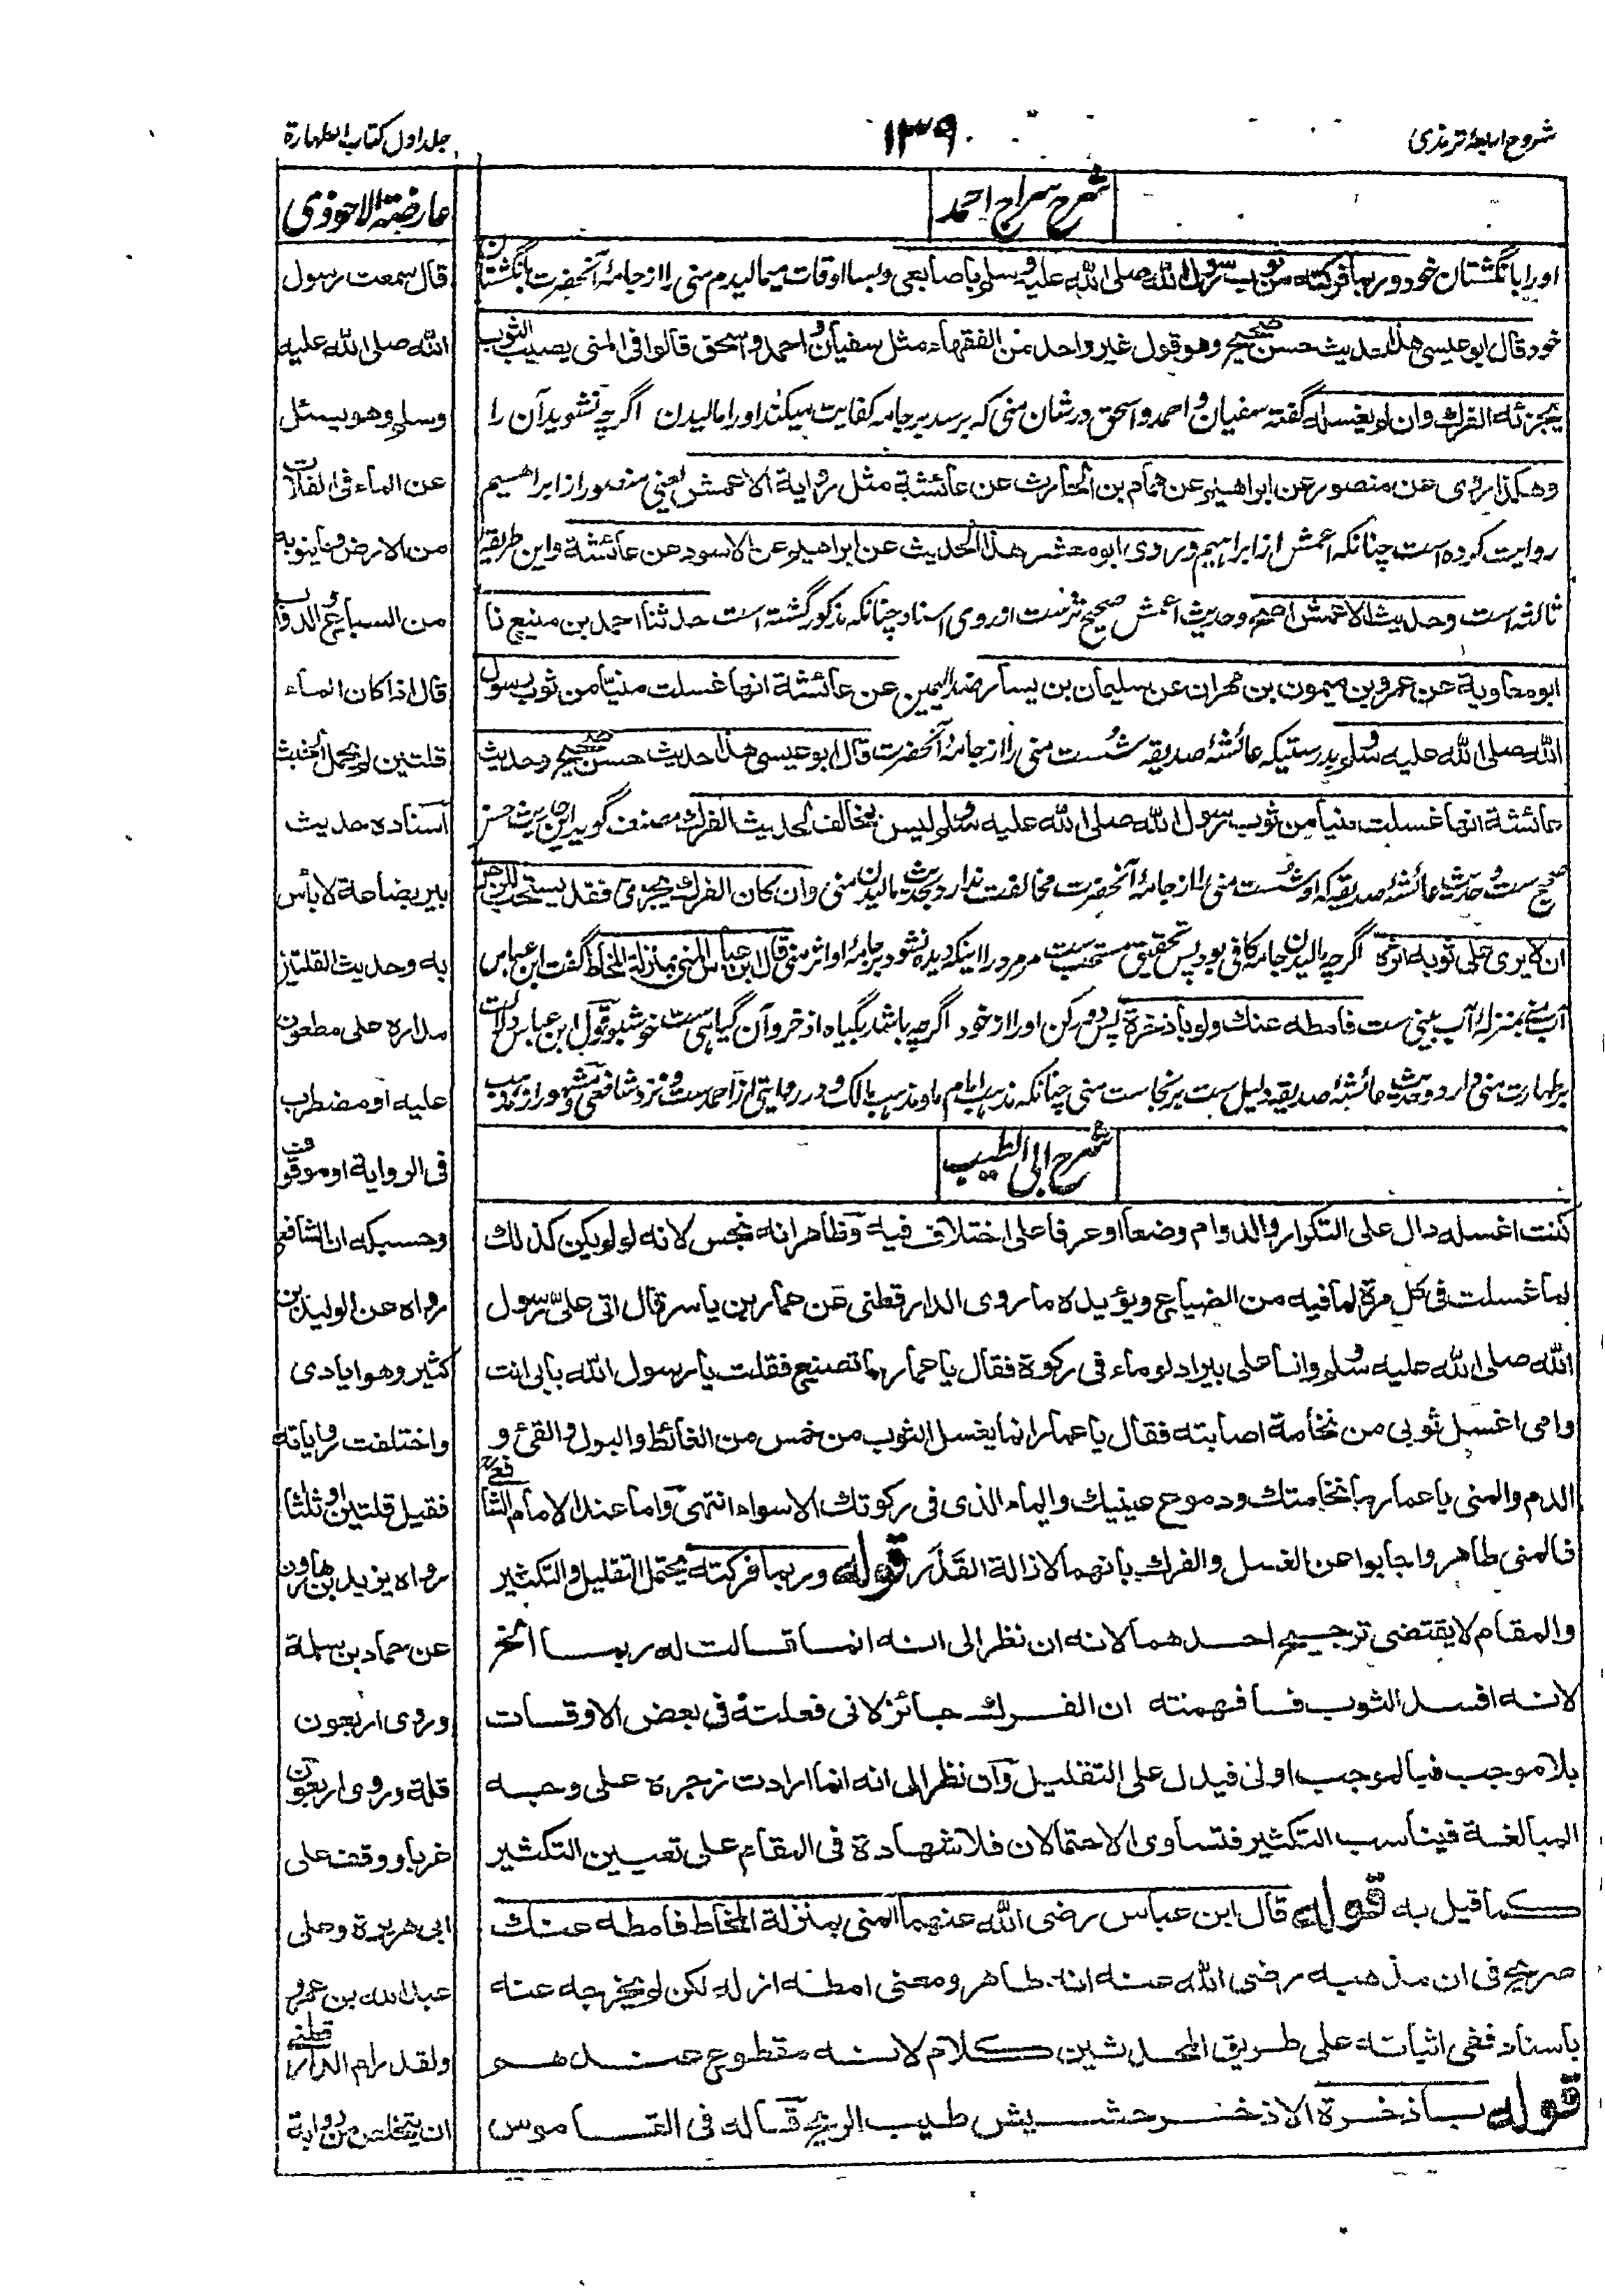 شروح اربعهٔ ترمذی
۱۳۹
جلد اول کتاب الطهارة
شرح سراج احمد
اورا بانگشتان خود وربما فركته من ثوب رسول الله صلى الله عليه وسلم باصابعی وبسا اوقات میمالیدم منی را از جامهٔ آنحضرت بانگشتان
خود قال ابو عیسی هذا حدیث حسن صحیح وهو قول غیر واحد من الفقهاء مثل سفیان واحمد واسحق قالوا فی المنی یصیب الثوب
یجزئه الفرك وان لم یغسله گفته سفیان واحمد واسحق در شان منی که برسد بر جامه کفایت میکند اورا مالیدن اگرچه نشوید آن را
وهكذا روی عن منصور عن ابراهیم عن همام بن الحارث عن عائشة مثل روایة الاعمش یعنی منصور از ابراهیم
روایت کرده است چنانکه اعمش از ابراهیم وروی ابو معشر هذا الحدیث عن ابراهیم عن الاسود عن عائشة واین طریقهٔ
ثالثه است وحدیث الاعمش اصح وحدیث اعمش صحیح ترست از روی اسناد چنانکه مذکور گشته است حدثنا احمد بن منیع نا
ابو معاویة عن عمرو بن میمون بن مهران عن سلیمان بن یسار عن عائشة انها غسلت منیا من ثوب رسول
الله صلى الله عليه وسلم بدرستیکه عائشهٔ صدیقه شست منی را از جامهٔ آنحضرت قال ابو عیسی هذا حدیث حسن صحیح وحدیث
عائشة انها غسلت منیا من ثوب رسول الله صلى الله عليه وسلم لیس بمخالف لحدیث الفرك مصنف گوید این حدیث حسن
صحیح ست وحدیث عائشهٔ صدیقه که او شست منی را از جامهٔ آنحضرت مخالفت ندارد بحدیث مالیدن منی وان كان الفرك یجزئ فقد یستحب للرجل
ان لا یری علی ثوبه اثره اگرچه مالیدن جامه کافی بود پس تحقیق مستحب ست مر مرد را اینکه دیده نشود بر جامهٔ او اثر منی قال ابن عباس المنی بمنزلة المخاط گفت ابن عباس
آب منی بمنزلهٔ آب بینی ست فامطه عنك ولو باذخرة پس دور کن اورا از خود اگرچه باشد بگیاه اذخر وآن گیاهی ست خوشبو وقول ابن عباس دلالت
بر طهارت منی دارد وحدیث عائشهٔ صدیقه دلیل ست بر نجاست منی چنانکه مذهب امام ما ومذهب مالک ودر روایتی از احمد ست ونزد شافعی ومشهور از مذهب
شرح ابی الطیب
كنت اغسله دال على التكرار والدوام وضعا او عرفا على اختلاف فيه وظاهر انه نجس لانه لو لم يكن كذلك
لما غسلت فى كل مرة لما فيه من الضياع ويؤيده ما روى الدارقطنى عن عمار بن ياسر قال اتى علىّ رسول
الله صلى الله عليه وسلم وانا على بير ادلو ماء فى ركوة فقال يا عمار ما تصنع فقلت يا رسول الله بابى انت
وامى اغسل ثوبى من نخامة اصابته فقال يا عمار انما يغسل الثوب من خمس من الغائط والبول والقئ و
الدم والمنى يا عمار ما نخامتك ودموع عينيك والماء الذى فى ركوتك الا سواء انتهى واما عند الامام الشافعى
فالمنى طاهر واجابوا عن الغسل والفرك بانهما لازالة القَذَر قوله وربما فركته يحتمل التقليل والتكثير
والمقام لا يقتضى ترجيح احدهما لانه ان نظر الى انه انما قالت له ربما الخ
لانه افسد الثوب فافهمته ان الفرك جائز لانى فعلته فى بعض الاوقات
بلا موجب فبالموجب اولى فيدل على التقليل وان نظر الى انه انما ارادت زجره على وجه
المبالغة فيناسب التكثير فتساوى الاحتمالان فلا شهادة فى المقام على تعيين التكثير
كما قيل به قوله قال ابن عباس رضى الله عنهما المنى بمنزلة المخاط فامطه عنك
صريح فى ان مذهبه رضى الله عنه انه طاهر ومعنى امطه ازله لكن لم يخرجه عنه
باسناد ففى اثباته على طريق المحدثين كلام لانه مقطوع عندهم
قوله باذخرة الاذخر حشيش طيب الريح قاله فى القاموس
عارضة الاحوذی
قال سمعت رسول
الله صلى الله عليه
وسلم وهو يسئل
عن الماء فى الفلات
من الارض وما ينوبه
من السباع والدواب
قال اذا كان الماء
قلتين لم يحمل الخبث
اسناده حديث
بير بضاعة لا بأس
به وحديث القلتين
مداره على مطعون
عليه او مضطرب
فى الرواية او موقوف
وحسبك ان الشافعى
رواه عن الوليد بن
كثير وهو اباضى
واختلفت رواياته
فقيل قلتين او ثلثا
رواه يزيد بن هارون
عن حماد بن سلمة
وروى اربعون
قلة وروى اربعون
غربا ووقف على
ابى هريرة وعلى
عبد الله بن عمرو
ولقد رام الدارقطنى
ان يتخلص من رواية